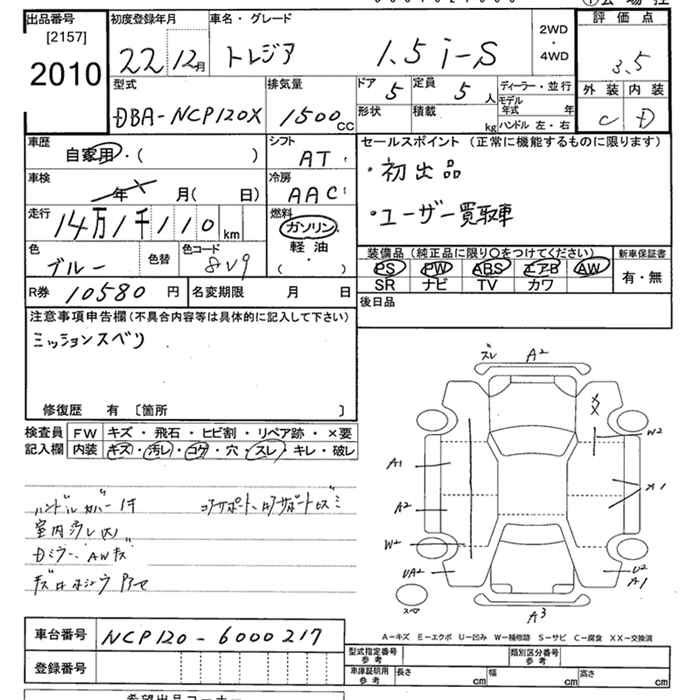 出品番号
[2157]
2010
初度登録年月
22 12月
車名・グレード
トレジア 1.5 i-S
2WD
・
4WD
評価点
3.5
外装 内装
C D
型式
DBA-NCP120X
排気量
1500 CC
ドア 5
定員 5人
形状
積載 kg
ディーラー・並行
モデル年式 年
ハンドル 左・右
車歴
自家用・( )
シフト
AT
車検
年 月( 日)
冷房
AAC
走行
14万1千110 km
燃料
ガソリン
軽油
( )
色
ブルー
色替
色コード
8V9
R券 10580円
名変期限 月 日
セールスポイント (正常に機能するものに限ります)
・初出品
・ユーザー買取車
装備品(純正品に限り○をつけてください)
PS PW ABS エアB AW
SR ナビ TV カワ
新車保証書
有・無
後日品
注意事項申告欄(不具合内容等は具体的に記入して下さい)
ミッションスベリ
修復歴 有 〔箇所 〕
検査員
記入欄
FW キズ・飛石・ヒビ割・リペア跡・×要
内装 キズ・汚レ・コゲ・穴・スレ・キレ・破レ
ハンドルカバー付
室内汚レ大
Dミラー、AWキズ
ズレ A2
XX
W2
A1
X1
A2
W2
UA2
U2
A1
スペア
A3
A-キズ E-エクボ U-凹み W-補修跡 S-サビ C-腐食 XX-交換済
車台番号 NCP120-6000217
登録番号
型式指定番号
参考
類別区分番号
参考
車庫証明用
参考
長さ cm 幅 cm 高さ cm
希望出品コーナー